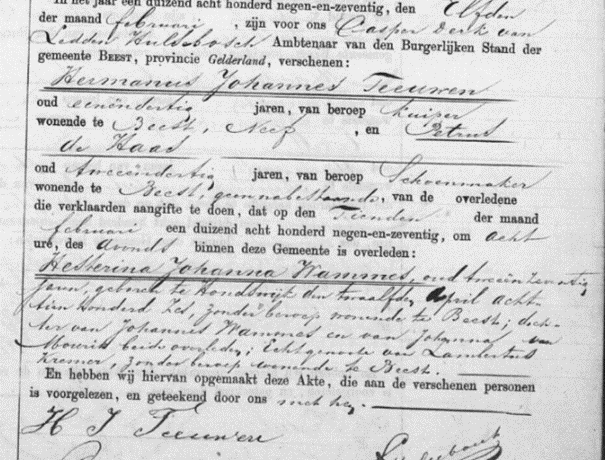 In het jaar een duizend acht honderd negen-en-zeventig, den Elfden
der maand februari , zijn voor ons Casper Derk van
Ledden Hulsebosch Ambtenaar van den Burgerlijken Stand der
gemeente BEEST, provincie Gelderland, verschenen:
Hermanus Johannes Teeuwen
oud eenëndertig jaren, van beroep kuiper
wonende te Beest, Neef , en Petrus
de Haas
oud tweeëndertig jaren, van beroep Schoenmaker
wonende te Beest, geen nabestaande, van de overledene
die verklaarden aangifte te doen, dat op den Tienden der maand
februari een duizend acht honderd negen-en-zeventig, om acht
ure, des avonds binnen deze Gemeente is overleden:
Hesterina Johanna Wammes, oud tweeën zeventig
jaren, geboren te Hondswijk den twaalfden April acht-
tien honderd zes, zonder beroep wonende te Beest; doch-
ter van Johannes Wammes en van Johanna van
Mourik beide overleden; Echtgenoote van Lambertus
Kremer, zonder beroep wonende te Beest.
En hebben wij hiervan opgemaakt deze Akte, die aan de verschenen personen
is voorgelezen, en geteekend door ons met hen.
H J Teeuwen